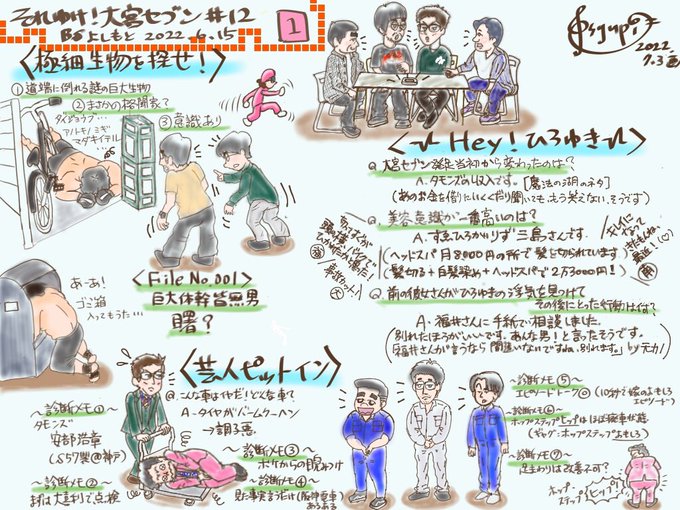 それゆけ!大宮セブン #12
BSよしもと 2022.6.15
1
2022.
7.3 画
〈極細生物を探せ!〉
①道端に倒れる謎の巨大生物
②まさかの格闘家で
ダイジョウブ…
アルモノ ミギ
マダキイテル…
③意識あり
〈File No.001〉
巨大体幹皆無男
曙?
あーあ!
ゴミ箱
入ってもうた…
〈Hey!ひろゆき〉
Q.大宮セブン発足当初から変わったのは?
A.タモンズの収入です。[魔法の湖のネタ]
(あのお金を借りにいくくだり聞いても、もう笑えないそうです)
Q.美容意識が一番高いのは?
A.すゑひろがりず 三島さんです。
(ヘッドスパ 月8000円の所で髪を切られています)
(髪切る+白髪染め+ヘッドスパで2万3000円!)
Q.前の彼女さんがひろゆきの浮気を見つけて
その後にとった行動は何は?
A.福井さんに手紙で相談しました。
(別れたほうがいいです、あんな男!と言ったそうです。
福井さんが言うなら間違いないですね、別れます。) by元カノ
〈芸人ピットイン〉
Q.こんな車はイヤだ!どんな車?
A-タイヤがバームクーヘン
→調子悪
〜診断メモ①〜
タモンズ
安部浩章
(S57製@神戸)
〜診断メモ②〜
まずは大喜利で点検
〜診断メモ③〜
ボケからの睨みつけ
〜診断メモ④〜
見た事実言うだけ(阪神電車)
あるある
〜診断メモ⑤〜
エピソードトーク◎(10分で嫁のおもしろ
エピソード)
〜診断メモ⑥〜
ホップステップヒップはほぼ廃車状態
(ギャグ:ホップステップおもしろ)
〜診断メモ⑦〜
足まわりは改善不可?
ホップ・
ステップ
ヒップ!